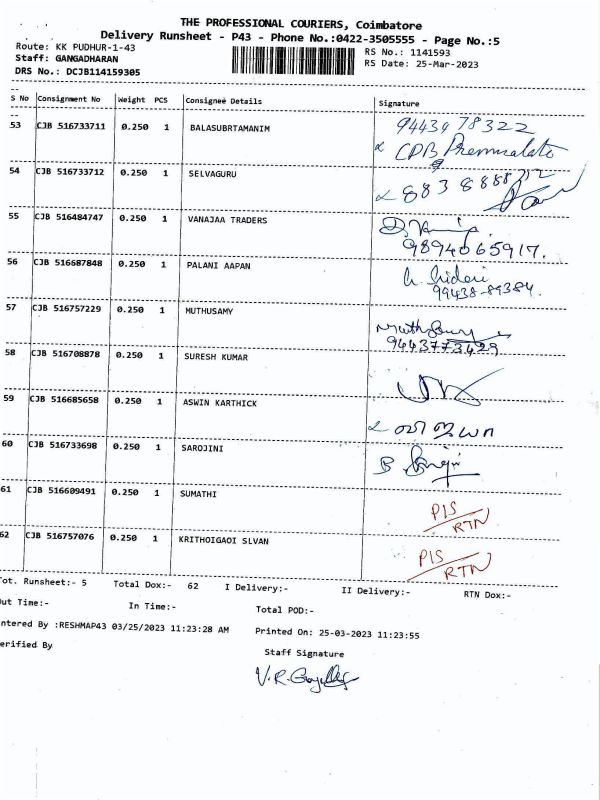 THE PROFESSIONAL COURIERS, Coimbatore
Delivery Runsheet - P43 - Phone No.:0422-3505555 - Page No.:5
Route: KK PUDHUR-1-43
RS No.: 1141593
Staff: GANGADHARAN
RS Date: 25-Mar-2023
DRS No.: DCJB114159305
S No Consignment No Weight PCS Consignee Details Signature
53 CJB 516733711 0.250 1 BALASUBRTAMANIM 9443978322
54 CJB 516733712 0.250 1 SELVAGURU
55 CJB 516484747 0.250 1 VANAJAA TRADERS
9894065917.
56 CJB 516687848 0.250 1 PALANI AAPAN
99438-89384.
57 CJB 516757229 0.250 1 MUTHUSAMY
9443773429
58 CJB 516708878 0.250 1 SURESH KUMAR
59 CJB 516685658 0.250 1 ASWIN KARTHICK
விஜயா
60 CJB 516733698 0.250 1 SAROJINI
61 CJB 516609491 0.250 1 SUMATHI PIS
RTN
62 CJB 516757076 0.250 1 KRITHOIGAOI SLVAN PIS
RTN
Tot. Runsheet:- 5 Total Dox:- 62 I Delivery:- II Delivery:- RTN Dox:-
Out Time:- In Time:- Total POD:-
ntered By :RESHMAP43 03/25/2023 11:23:28 AM Printed On: 25-03-2023 11:23:55
erified By Staff Signature